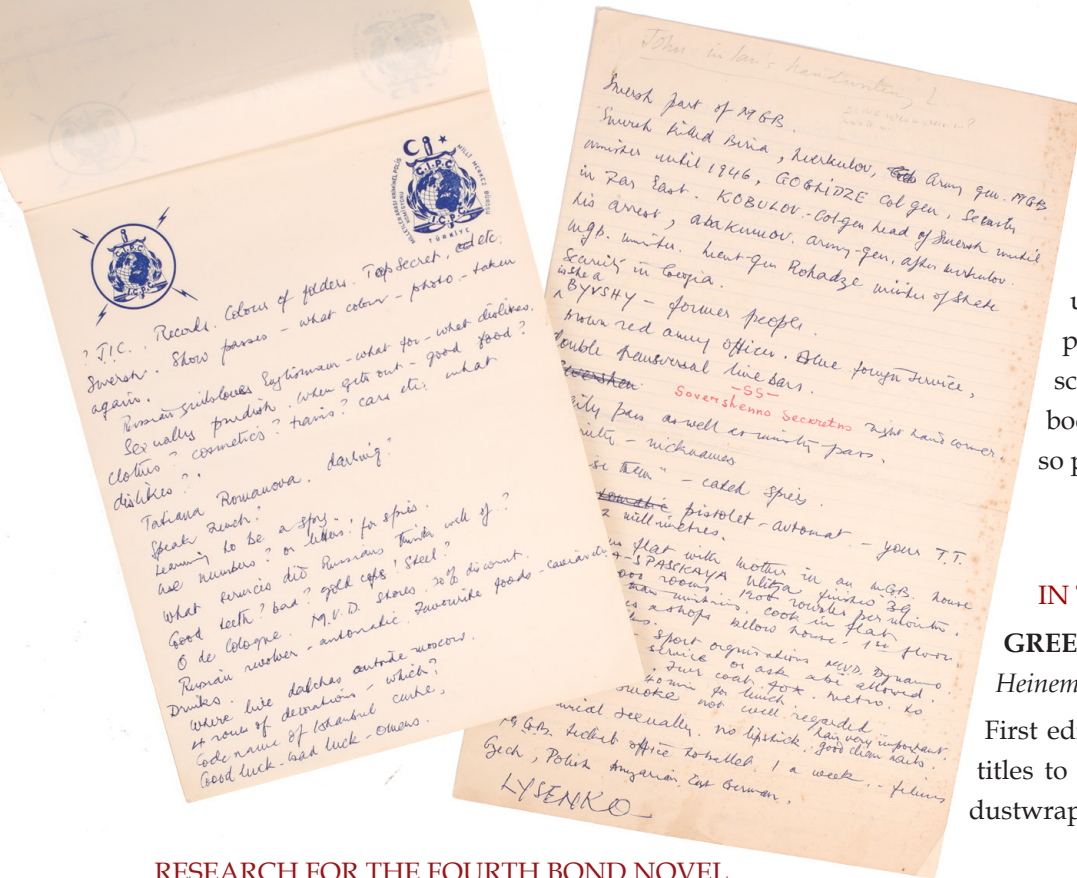 C.I.P.C.
I.C.P.C.
TÜRKİYE
C.I.P.C.
I.C.P.C.
? J.I.C. Records. Colour of folders. Top Secret, etc.
Smersh. Show passes - what colour - photo - taken
again.
Russian girl loves Englishman - what for - what dislikes.
Sexually prudish. When gets out - good food?
Clothes? cosmetics? trains? cars etc. what
dislikes?
Tatiana Romanova. darling"
Speak French?
Learning to be a spy.
Use numbers? or letters? for spies.
What services did Russians think well of?
Good teeth? bad? gold caps? Steel?
O de Cologne. M.V.D. stores. 20% discount.
Russian revolver - automatic. Favourite foods - caviar
Drinks.
Where live datchas outside moscow.
4 rows of decorations - which?
Code name of Istanbul
Good luck - bad luck - Omens.
John in Ian's handwriting
Smersh part of MGB.
Smersh killed Biria, Merkulov, Army gen. MGB
minister until 1946, GOGLIDZE Col gen, Security
in Far East. KOBULOV - Col gen head of Smersh until
his arrest, abakumov. army-gen, after merkulov.
mgb. minister. Lieut-gen minister of State
Security in Georgia.
is she a
BYVSHY - former people.
brown red army officer. Blue foreign service,
double transversal line bars.
-SS-
Sovershenno Secretno right hand corner.
pass as well as ministry pass.
- nicknames
them" - called spies
pistolet - avtomat. - your T.T.
2 millimetres.
flat with mother in an MGB. house
A-SPASSKAYA Ulitza finished 39
rooms. 1200 roubles per month.
cook in flat
shops below house - 1st floor.
- Sport organisations MVD. Dynamo.
service or ask allowed
Fur coat. fox. metro. to
40 min for lunch. hair very important
smoke not well regarded
sexually. no lipstick. good clean nails.
M.G.B. ticket office to ballet. 1 a week. - films
Czech, Polish Hungarian, East German,
LYSENKO
u
p
sc
boo
so p
IN
GREE
Heinem
First ed
titles to
dustwrap
RESEARCH FOR THE FOURTH BOND NOVEL